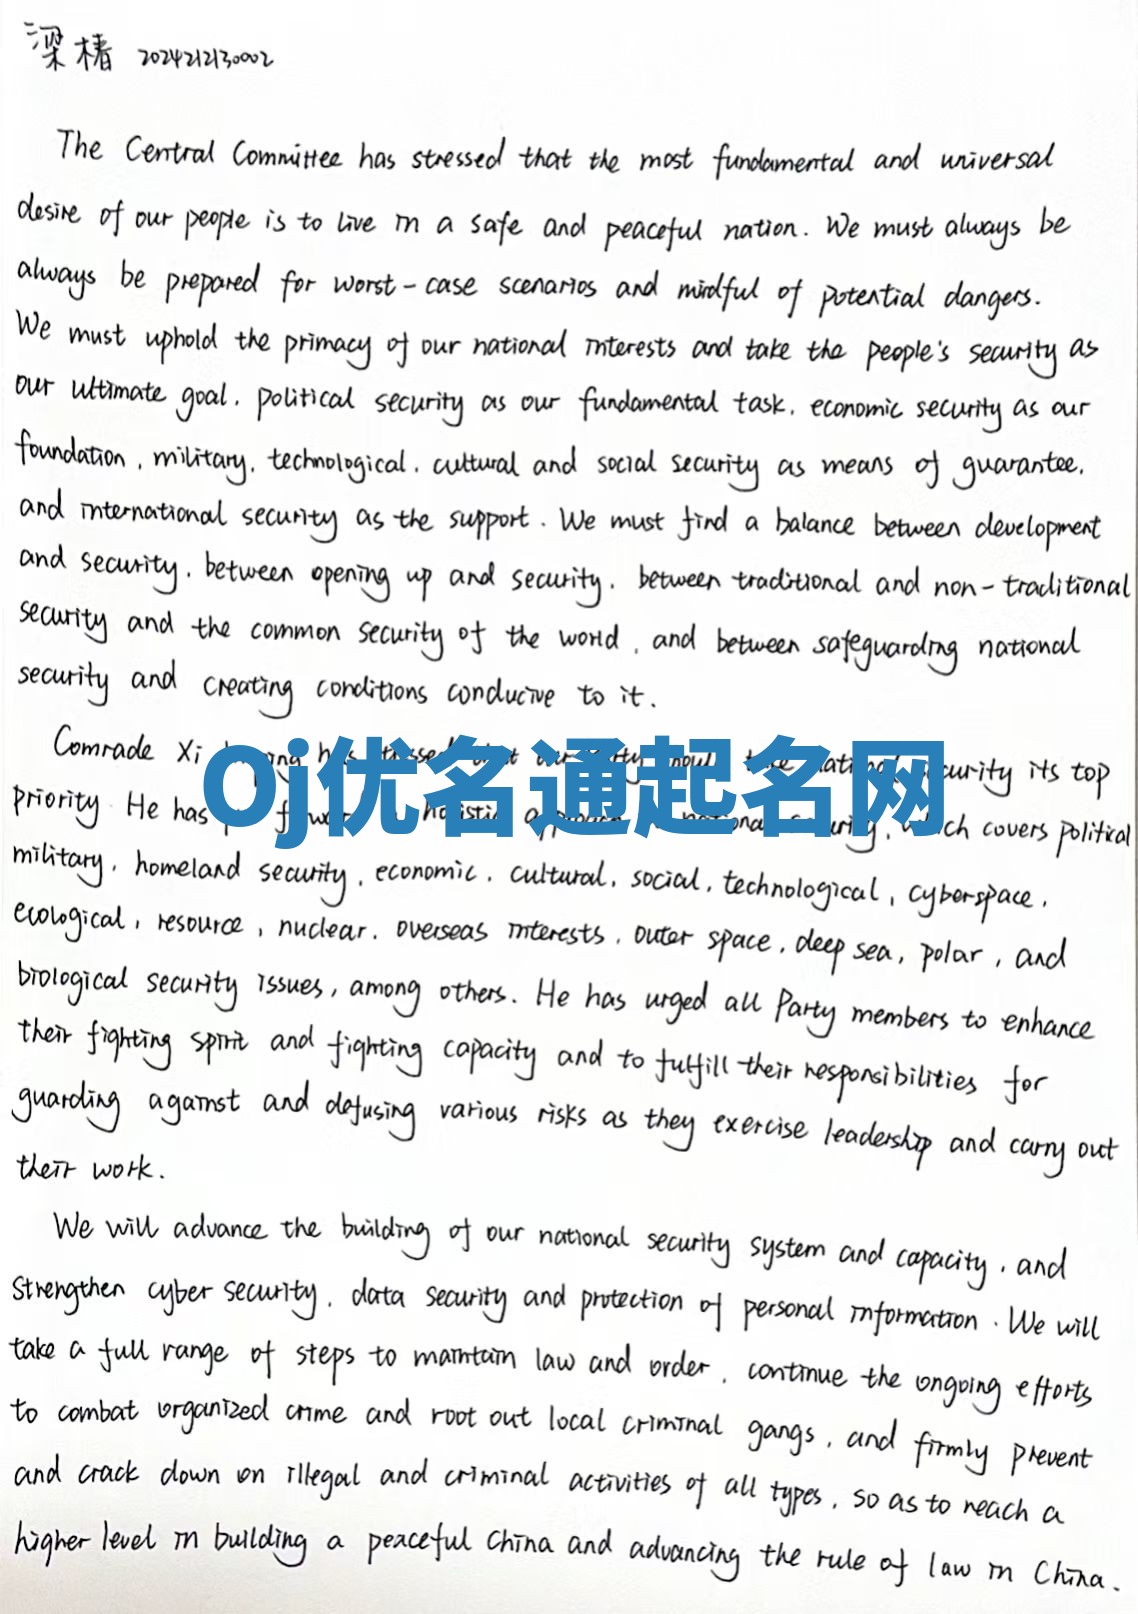 梁椿 2024212130002
The Central Committee has stressed that the most fundamental and universal
desire of our people is to live in a safe and peaceful nation. We must always be
always be prepared for worst-case scenarios and mindful of potential dangers.
We must uphold the primacy of our national interests and take the people's security as
our ultimate goal, political security as our fundamental task, economic security as our
foundation, military, technological, cultural and social security as means of guarantee,
and international security as the support. We must find a balance between development
and security, between opening up and security, between traditional and non-traditional
security and the common security of the world, and between safeguarding national
security and creating conditions conducive to it.
Comrade Xi has that security its top
Oj优名通起名网
priority. He has holistic which covers political
military, homeland security, economic, cultural, social, technological, cyberspace,
ecological, resource, nuclear, overseas interests, outer space, deep sea, polar, and
biological security issues, among others. He has urged all Party members to enhance
their fighting spirit and fighting capacity and to fulfill their responsibilities for
guarding against and defusing various risks as they exercise leadership and carry out
their work.
We will advance the building of our national security system and capacity, and
strengthen cyber security, data security and protection of personal information. We will
take a full range of steps to maintain law and order, continue the ongoing efforts
to combat organized crime and root out local criminal gangs, and firmly prevent
and crack down on illegal and criminal activities of all types, so as to reach a
higher level in building a peaceful China and advancing the rule of law in China.